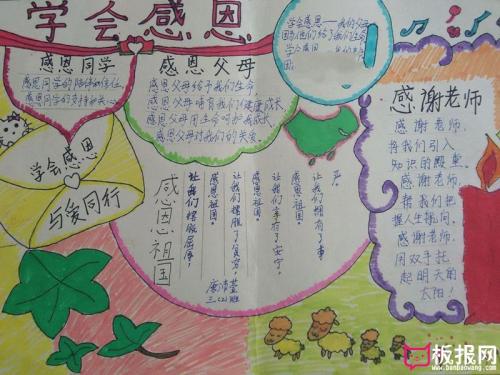 学会感恩
感恩同学
感恩同学的陪伴和信任,
感恩同学的支持和关心。
感恩父母
感恩父母给予我们生命,
感恩父母哺育我们健康成长,
感恩父母用生命呵护我成长,
感恩父母对我们的关爱。
学会感恩——我们的父母
学会感恩
与爱同行
感恩祖国
尊严。
让我们拥有了
感恩祖国。
让我们享有了安宁,
感恩祖国。
让我们摆脱了贫穷,
感恩祖国。
让我们摆脱屈辱,
三(2)班
感谢老师
感谢老师,
将我们引入
知识的殿堂。
感谢老师,
替我们把
握人生航向。
感谢老师,
用双手托
起明天的
太阳!
板报网
www.banbaowang.com